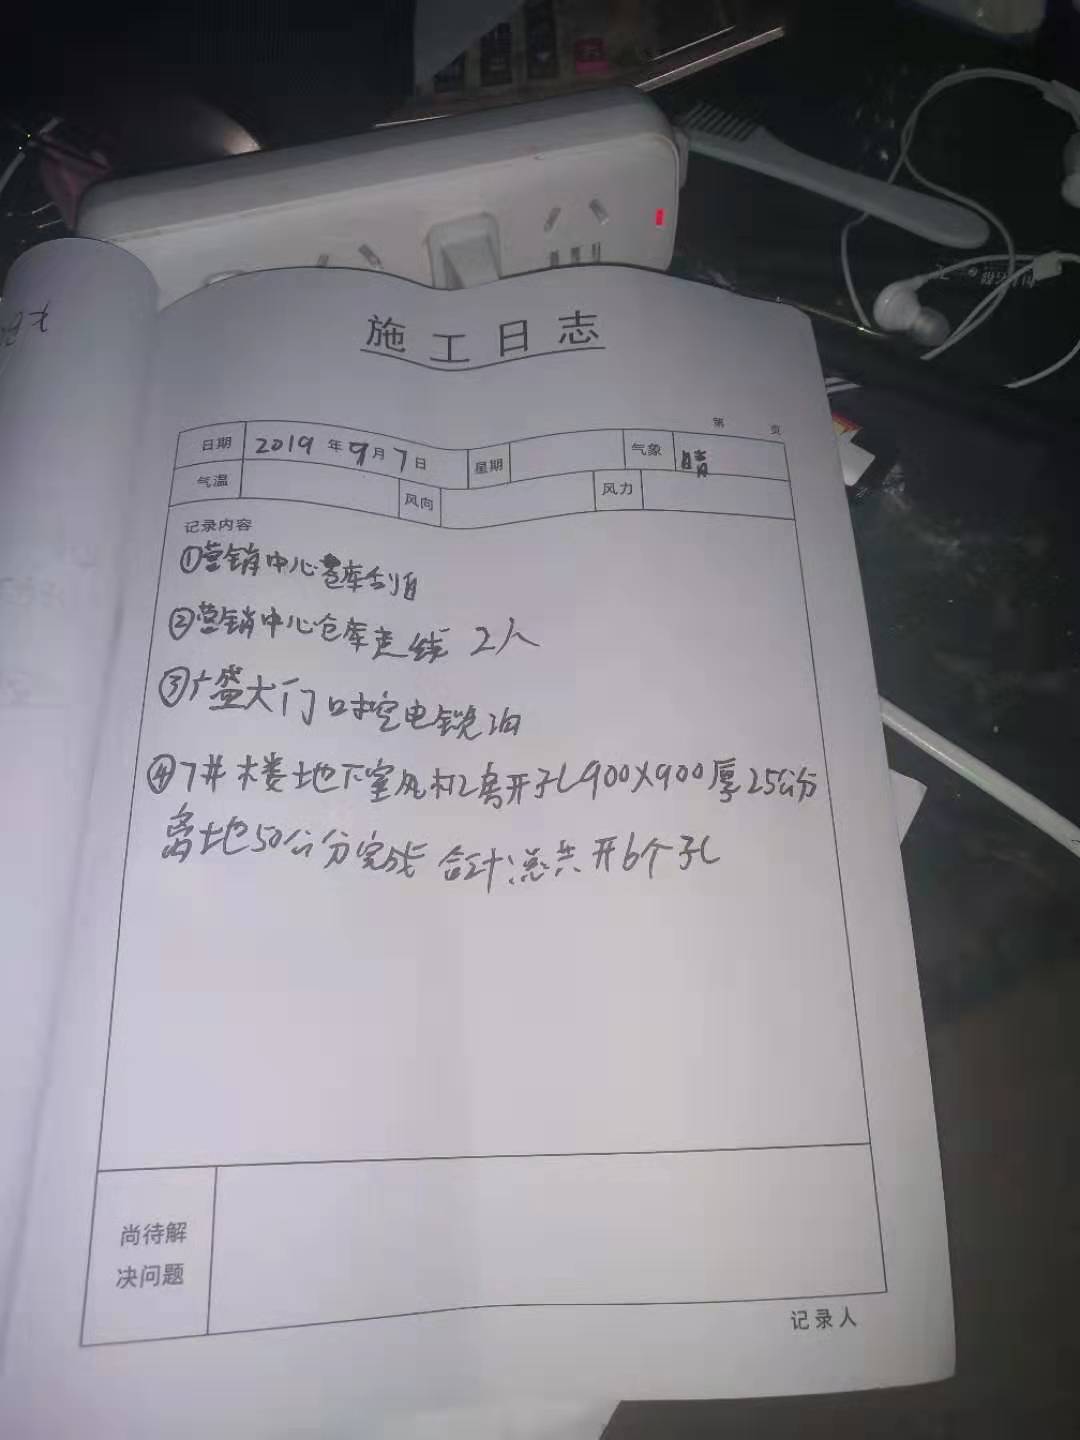 施工日志
第 页
日期 2019年9月7日 星期 气象 晴
气温 风向 风力
记录内容
①营销中心仓库
②营销中心仓库走线 2人
③广盛大门口挖电缆沟
④7井楼地下室风机房开孔900X900厚25公分
离地50公分完成 合计总共开6个孔
尚待解
决问题
记录人